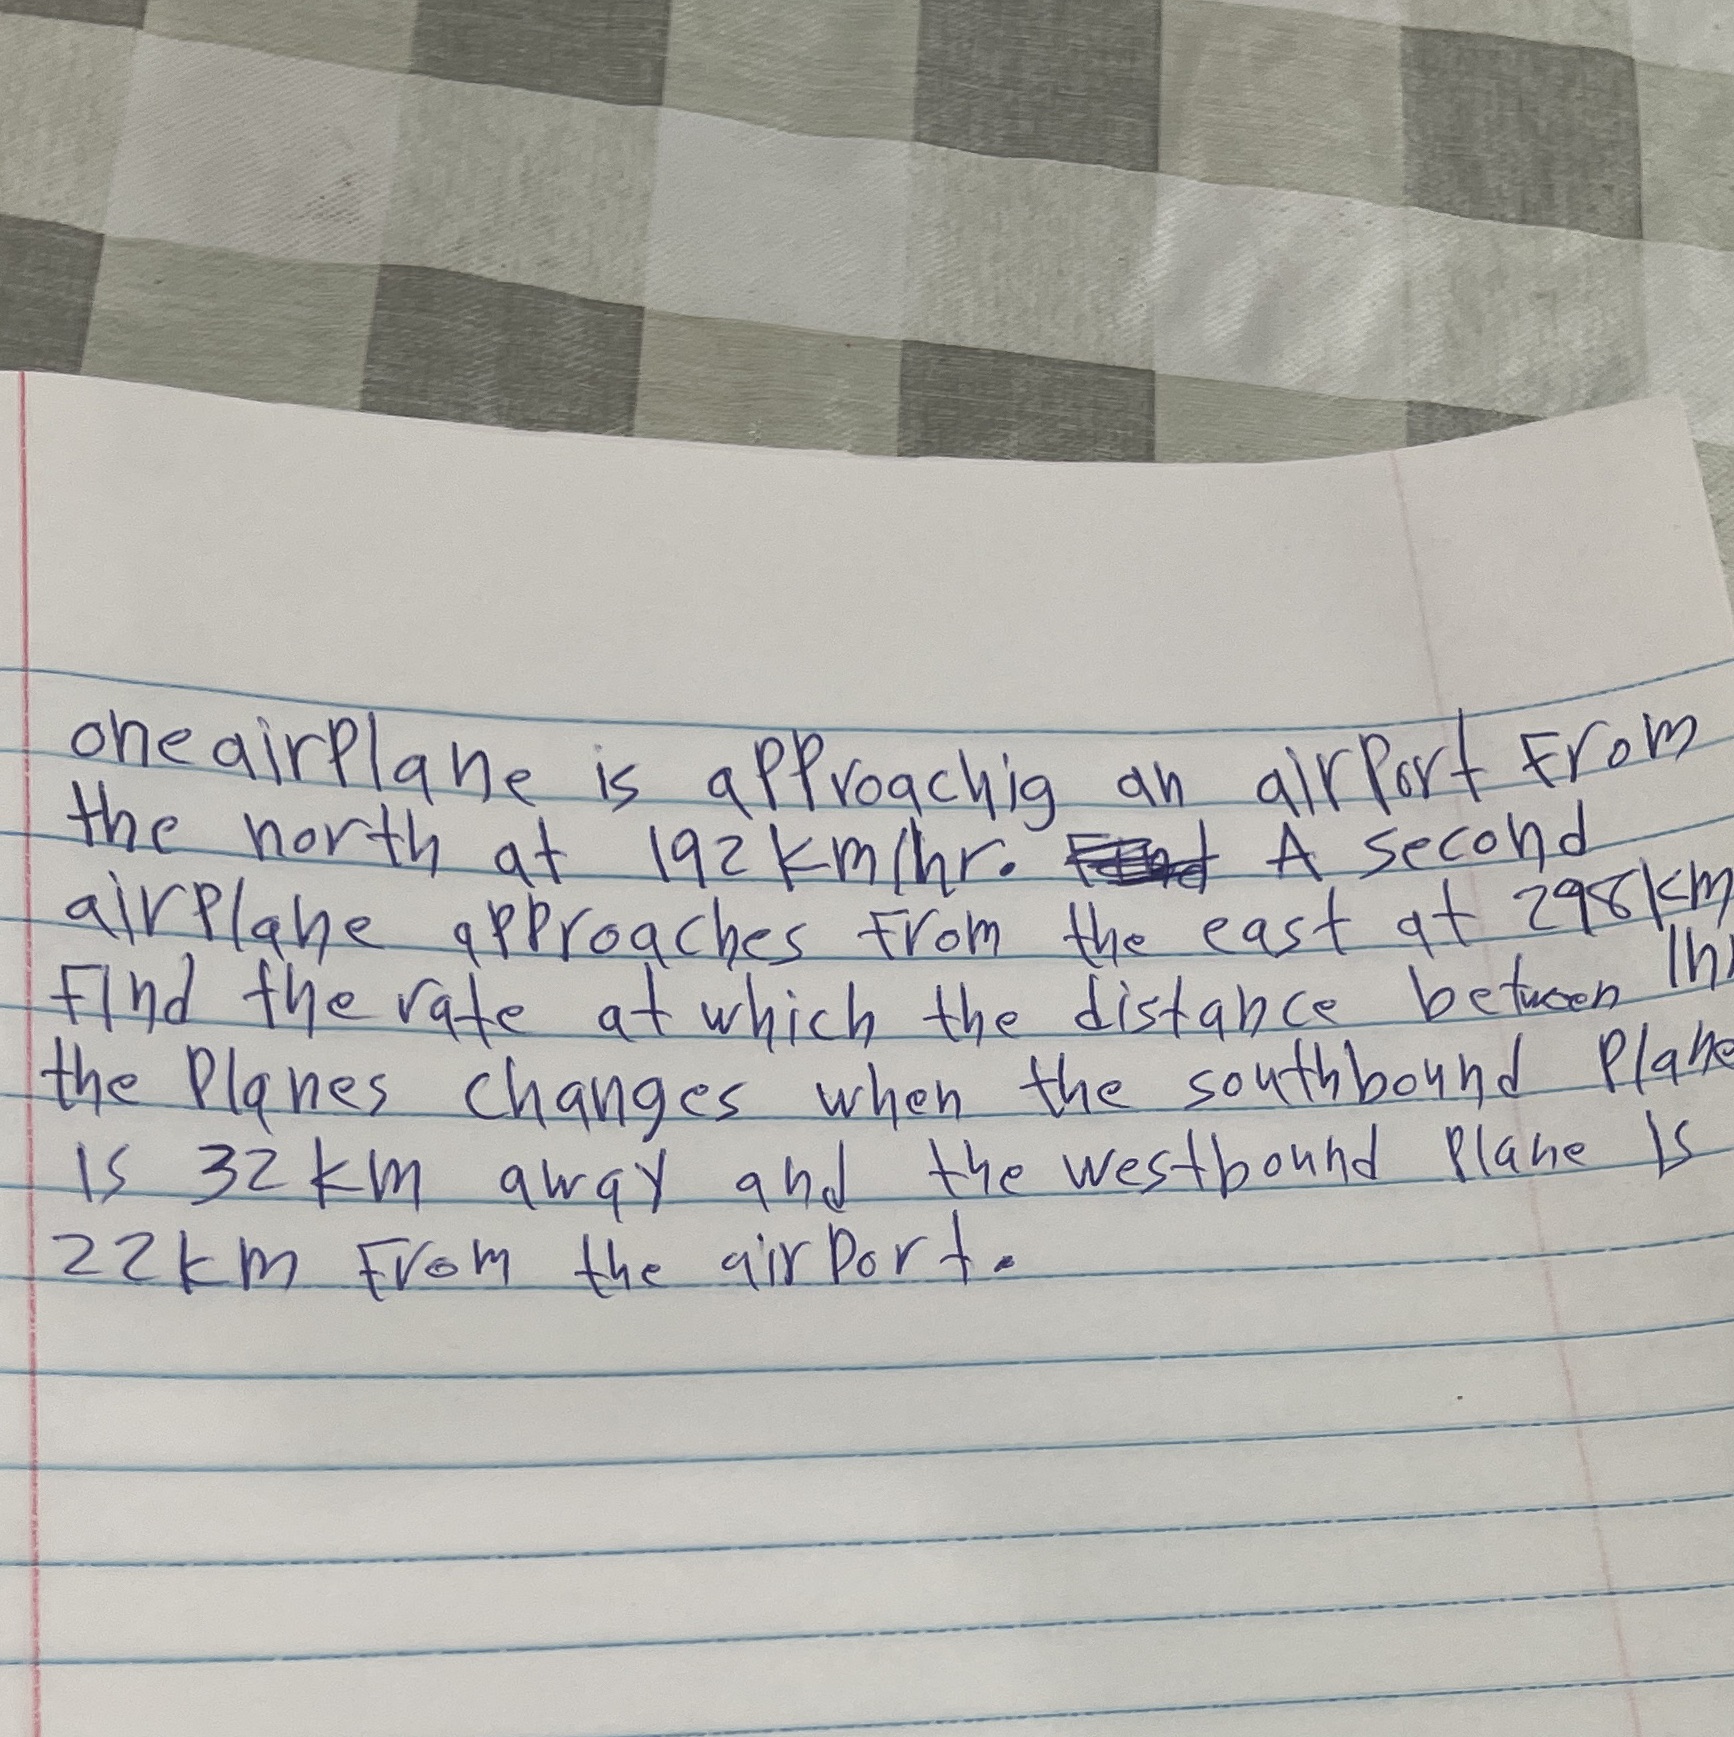 one airplane is approachig an airport From
the north at 192 km/hr. A second
airplane approaches From the east at 298km
/hr
Find the rate at which the distance between
the planes changes when the southbound plane
is 32 km away and the westbound plane is
22 km From the airport.